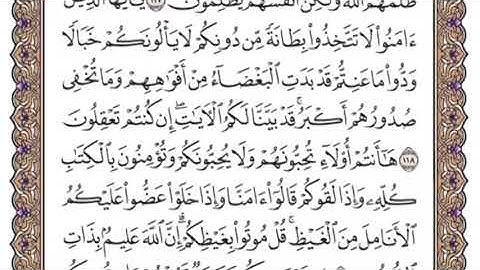 ظَلَمَهُمُ ٱللَّهُ وَلَـٰكِنْ أَنفُسَهُمْ يَظْلِمُونَ ١١٧ يَـٰٓأَيُّهَا ٱلَّذِينَ
ءَامَنُوا۟ لَا تَتَّخِذُوا۟ بِطَانَةً مِّن دُونِكُمْ لَا يَأْلُونَكُمْ خَبَالًا
وَدُّوا۟ مَا عَنِتُّمْ قَدْ بَدَتِ ٱلْبَغْضَآءُ مِنْ أَفْوَٰهِهِمْ وَمَا تُخْفِى
صُدُورُهُمْ أَكْبَرُ ۚ قَدْ بَيَّنَّا لَكُمُ ٱلْـَٔايَـٰتِ ۖ إِن كُنتُمْ تَعْقِلُونَ
١١٨ هَـٰٓأَنتُمْ أُو۟لَآءِ تُحِبُّونَهُمْ وَلَا يُحِبُّونَكُمْ وَتُؤْمِنُونَ بِٱلْكِتَـٰبِ
كُلِّهِۦ وَإِذَا لَقُوكُمْ قَالُوٓا۟ ءَامَنَّا وَإِذَا خَلَوْا۟ عَضُّوا۟ عَلَيْكُمُ
ٱلْأَنَامِلَ مِنَ ٱلْغَيْظِ ۚ قُلْ مُوتُوا۟ بِغَيْظِكُمْ ۗ إِنَّ ٱللَّهَ عَلِيمٌۢ بِذَاتِ